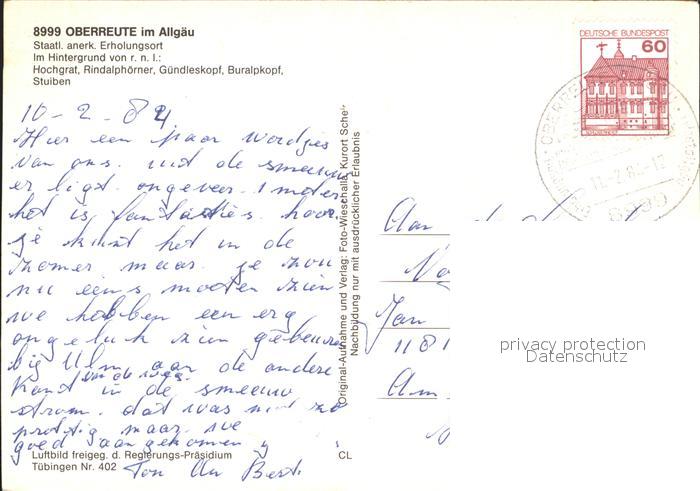 8999 OBERREUTE im Allgäu
Staatl. anerk. Erholungsort
Im Hintergrund von r. n. l.:
Hochgrat, Rindalphörner, Gündleskopf, Buralpkopf,
Stuiben
DEUTSCHE BUNDESPOST
60
10-2-84
Hier een paar woordjes
van ons. uit de smeeuw
er ligt ongeveer 1 meter
het is fantasties. hoor
je kunt het in de
zomer maar je zou
nu eens moeten zien
we hebben een erg
ongeluk zien gebeuren
bij Ulm aan de andere
kant van de weg in de smeeuw
strom. dat was niet zo
prettig maar we
goed aangekomen
Ton An Bert
Original-Aufnahme und Verlag: Foto-Wieschalla, Kurort Sche-
Nachbildung nur mit ausdrücklicher Erlaubnis
Aan
Jan
1181
Am
privacy protection
Datenschutz
Luftbild freigeg. d. Regierungs-Präsidium
Tübingen Nr. 402
CL